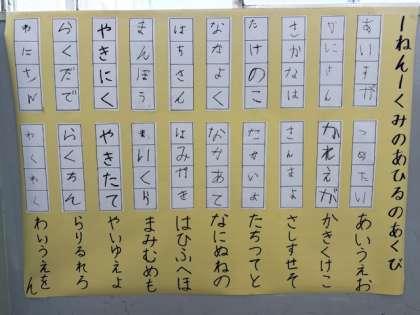 一ねん一くみのあひるのあくび
あいすが
つめたい
あいうえお
かにさん
かきくけこ
さかなは
さんまよ
さしすせそ
たけのこ
たかいよ
たちつてと
なかよく
なにぬねの
はちさん
はみがき
はひふへほ
まんぼう
まいくら
まみむめも
やきにく
やきたて
やいゆえよ
らくだで
らくちん
らりるれろ
わにさん
わくわく
わいうえをん